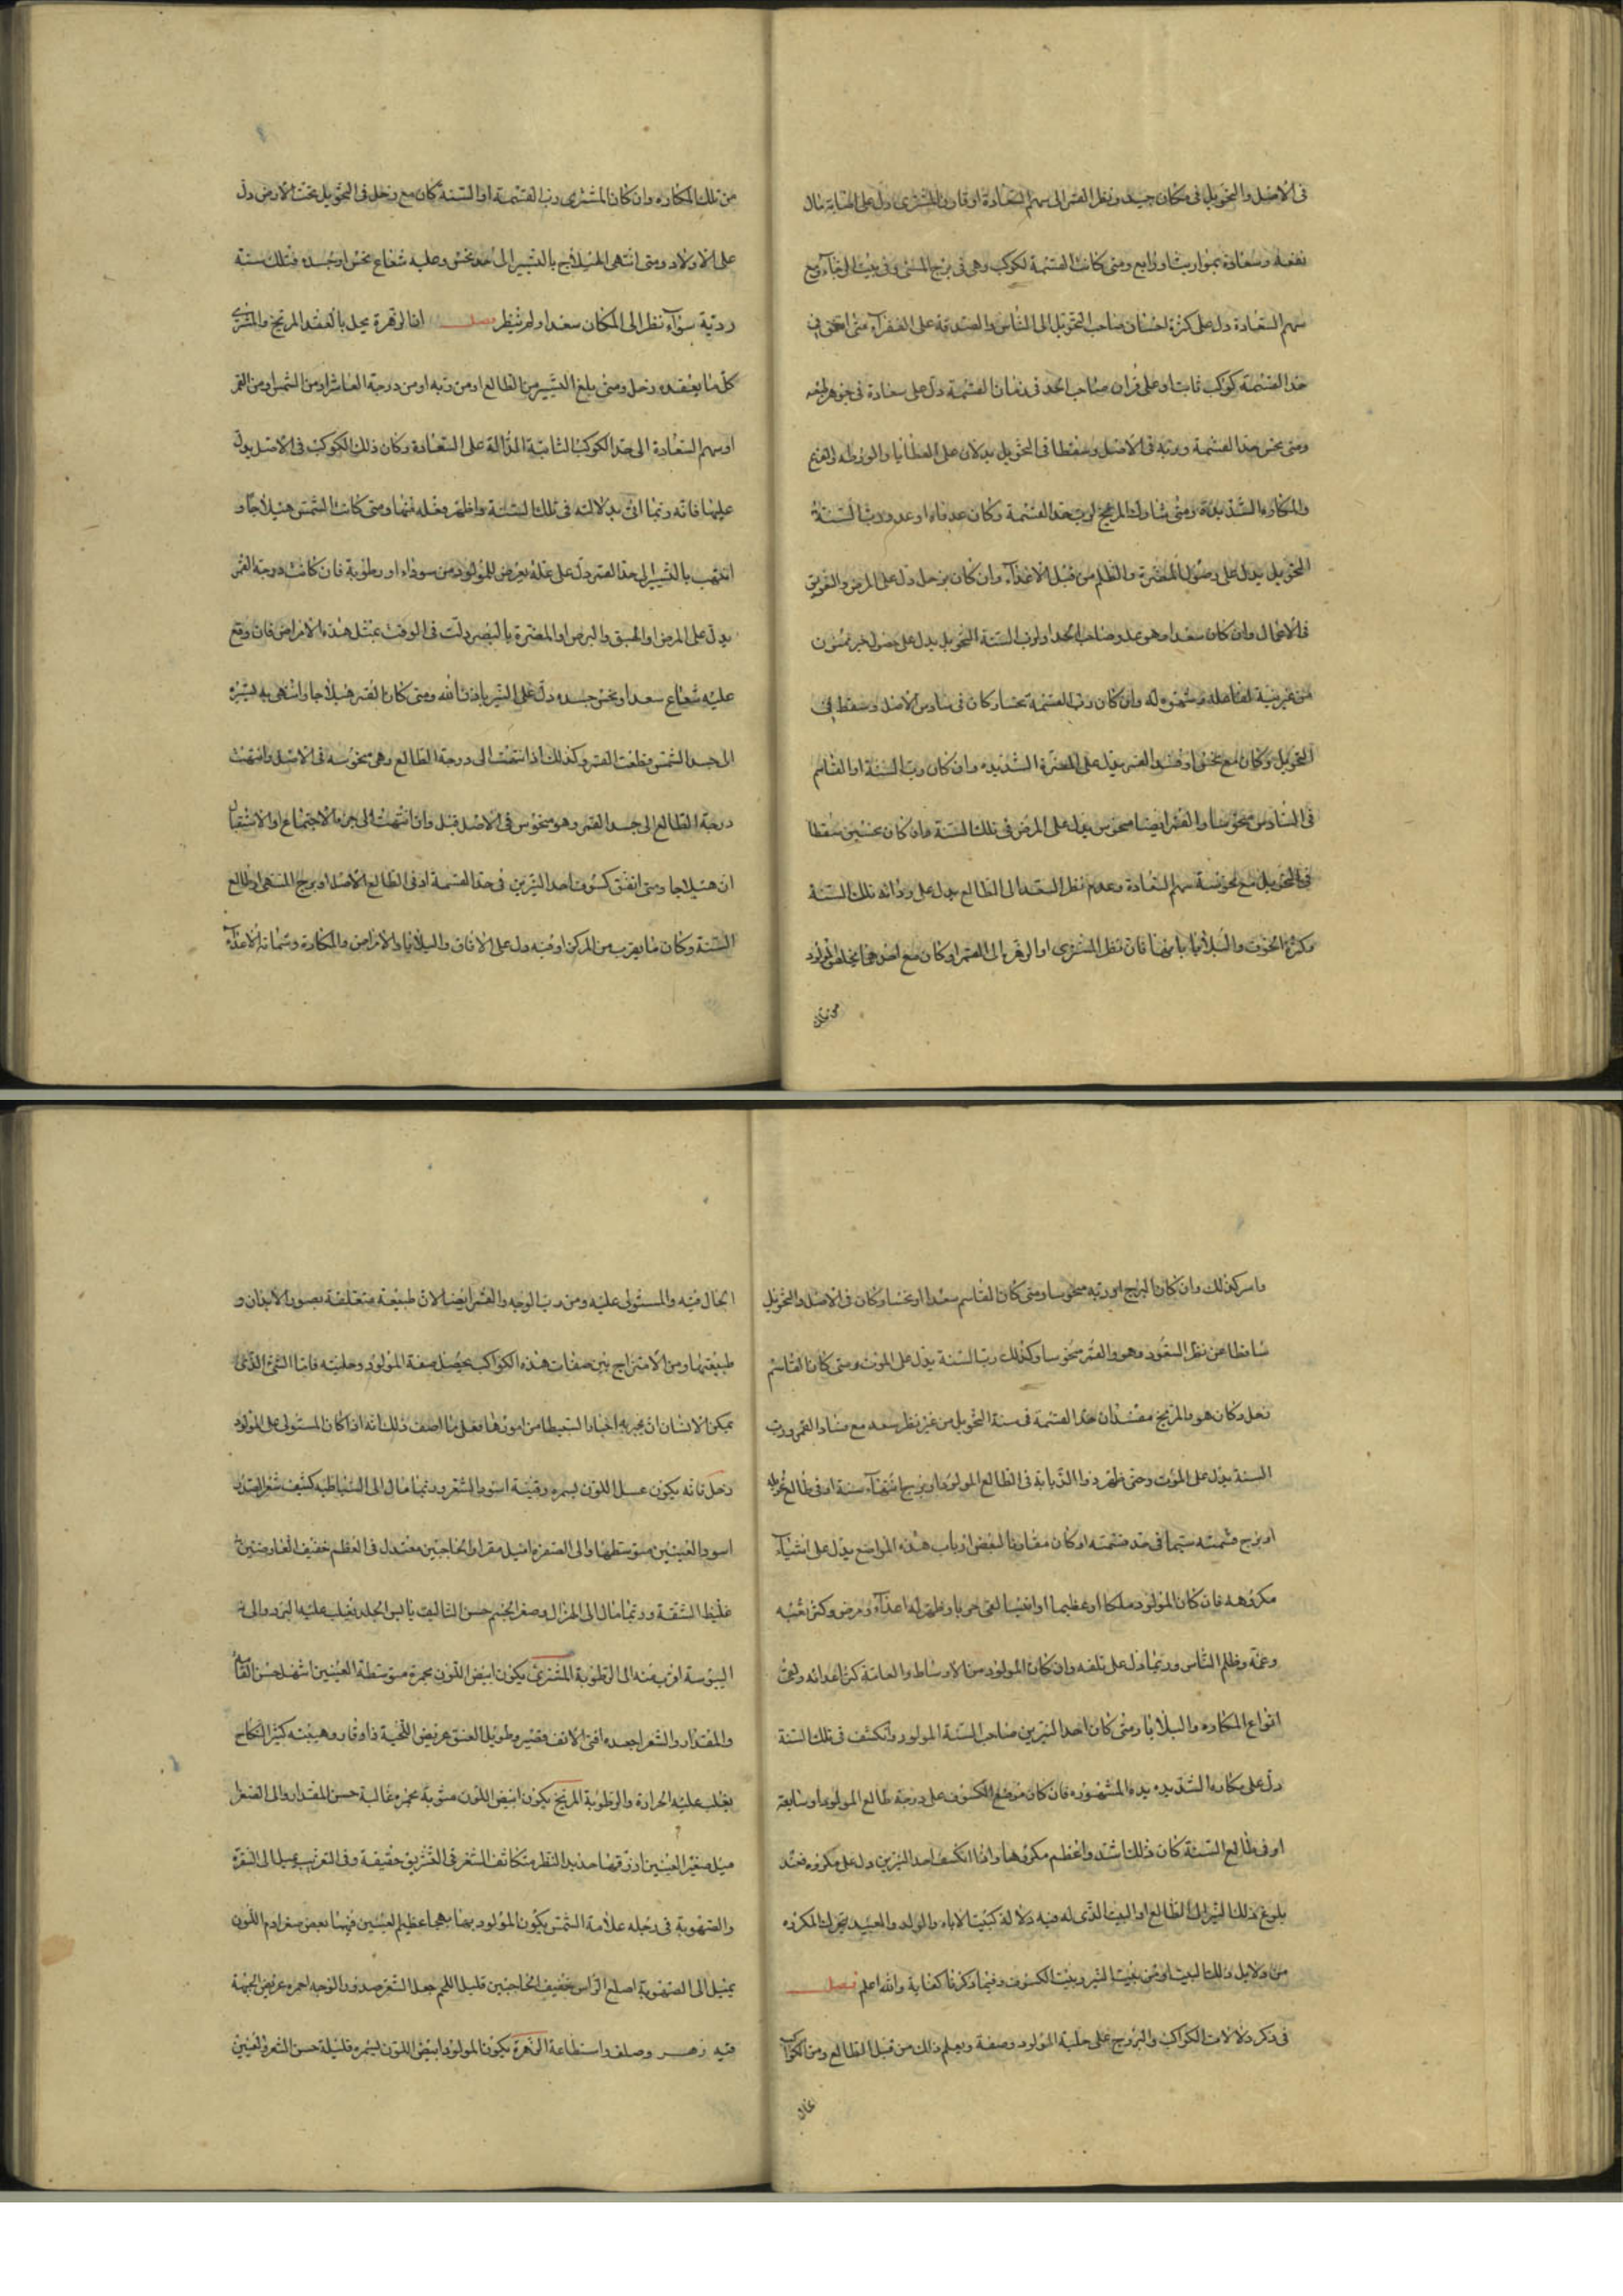 فى الاصل والتحويل فى مكان جيد ونظر القمر الى سهم السعادة او قارن المشترى دل على اصابة مال
نفعة وسعادة بمواريث او ودايع ومتى كانت القسمة لكوكب وهى فى برج المنتهى وفى بيت الرجاء ومع
سهم السعادة دل على كثرة احسان صاحب التحويل الى الناس والصدقة على الفقراء متى اتفق فى
حد القسمة كوكب ثابت او على قران صاحب الحد فى زمان القسمة دل على سعادة فى جوهر
ومتى نحس حد القسمة وربه فى الاصل وسقطا فى التحويل يدلان على البلايا والورطة
والمكاره الشديدة ومتى شارك المريخ لرب حد القسمة وكان عدواه او عدو رب السنة
التحويل يدل على وصول المضرة والظلم من قبل الاعداء وان كان زحل دل على المرض والتعويق
فى الاعمال وان كان سعدا وهو عدو صاحب الحد او لرب السنة التحويل يدل على حصول خير ممنون
من غريبة وان كان رب القسمة نحسا وكان فى سادس الاصل وسقط فى
التحويل وكان مع نحس او فسد القمر يدل على المضرة الشديدة وان كان رب السنة او القاسم
فى السادس منحوسا والقمر ايضا منحوس يدل على المرض فى تلك السنة وان كان نحسين سقطا
فى التحويل مع نحوسة سهم السعادة وعدم نظر السعد الى الطالع يدل على رداءة تلك السنة
وكثرة الخوف والبلايا بانها فان نظر المشترى او الزهرة الى القمر او كان مع المولود
من تلك
من تلك المكاره وان كان المشترى رب القسمة او السنة كان مع زحل فى التحويل تحت الارض دل
على الاولاد ومتى انتهى الهيلاج بالتسيير الى حد نحس وعليه شعاع نحس او جسده فتلك سنة
ردية سواء نظر الى المكان سعد او لم ينظر فصل انا الزهرة يحل بالعقد المريخ والمشترى
كل ما يعقده زحل ومتى بلغ التسيير من الطالع او من ربه او من درجة العاشر او من الشمس او من القمر
او سهم السعادة الى حد الكوكب الثابتة الدالة على السعادة وكان ذلك الكوكب فى الاصل يدل
عليها فانه ربما اتى بدلالته فى تلك السنة واظهر فعله فيها ومتى كانت الشمس هيلاجا و
انتهت بالتسيير الى حد القمر دل على علة يعرض للمولود من سوداء او رطوبة فان كانت درجة القمر
يدل على المرض او البهق والبرص او المضرة بالبصر دلت فى الوقت بمثل هذه الامراض فان وقع
عليه شعاع سعد او نحس جسده دل على الشر باذن الله ومتى كان القمر هيلاجا وانتهى به تسييره
الى جسد الشمس قطعت القمر وكذلك اذا انتهت الى درجة الطالع وهى منحوسة فى الاصل وانتهت
درجة الطالع الى جسد القمر وهو منحوس فى الاصل قتل وان انتهت الى جزء الاجتماع او الاستقبال
ان هيلاجا ومتى اتفق كسوف احد النيرين فى حد القسمة او فى الطالع الاصل او برج المنتهى او طالع
السنة وكان ما يقرب من المركز او فيه دل على الافات والبلايا والامراض والمكاره وشماتة الاعداء
واسر كذلك وان كان البرج او ربه منحوسا ومتى كان القاسم سعدا او نحسا وكان فى الاصل والتحويل
ساقطا عن نظر السعود وهو والقمر منحوسا وكذلك رب السنة يدل على الموت ومتى كان القاسم
زحل وكان هو والمريخ مفسدان حد القسمة فى سنة التحويل من غير نظر سعد مع فساد القمر ورب
السنة يدل على الموت وحتى ظهر ذوا الذبابة فى الطالع المولود او برج انتهاء سنة او فى طالع تحويله
او برج قسمته سيما فى حد قسمته او كان مقارنا لبعض ارباب هذه المواضع يدل على اشياء
مكروهة فان كان المولود ملكا او عظيما او رئيسا لقى حربا وظهر له اعداء ومرض وكثر تعبه
وغمه وظلم الناس وربما دل على تلفه وان كان المولود من الاوساط والعامة كثر اعدائه ولقى
انواع المكاره والبلايا ومتى كان احد النيرين صاحب السنة المولود وانكسف فى تلك السنة
دل على مكاره الشديده المشهوره فان كان موضع الكسوف على درجة طالع المولود او سابعه
او فى طالع السنة كان ذلك اشد واعظم مكروها واذا انكسف احد النيرين دل على مكروه فعند
بلوغ ذلك النير الى الطالع او البيت الذى له فيه دلالة كبيت الاباء والولد والعبيد يتحرك المكروه
من دلايل ذلك البيت او من بيت النير وبيت الكسوف وفيما ذكرنا كفاية والله اعلم فصل
فى ذكر دلالات الكواكب والبروج على حلية المولود وصفة ويعلم ذلك من قبل الطالع ومن الكواكب
الحال
الحال فيه والمستولى عليه ومن رب الوجه والقمر ايضا لان طبيعة متعلقة بصور الابدان و
طبيعتها ومن الامتزاج بين صفات هذه الكواكب يحصل صفة المولود وحليته فاما الشئ الذى
يمكن الانسان ان يخبر به اخبارا البسيطا من امورها فعلى ما اصف ذلك انه اذا كان المستولى على المولود
زحل فانه يكون عسل اللون بسمرة رقيقة اسود الشعر وربما مال الى السباطيه كثيف شعر الصدر
اسود العينين متوسطها والى الصفرة اميل مقرا والحاجبين معتدل فى العظم خفيف العارضين
غليظ الشفة وربما مال الى الهزال وصغر الجسم حسن التاليف يابس الجلد يغلب عليه البرد والى
اليبوسة اقرب منه الى الرطوبة المشترى يكون ابيض اللون بحمرة متوسطة العينين اشهل حسن القامة
والمقدار والشعر اجعده اقنى الانف قصير وطويل العنق عريض اللحية ذا وقار وهيبته كثير النكاح
يغلب عليه الحرارة والرطوبة المريخ يكون ابيض اللون مشوبة بحمرة غالبة حسن المقدار والى الصغر
ميل صغير العينين ازرقها حديد النظر متكاثف الشعر فى التشريق حقيقة وفى التغريب يميل الى الشقرة
والصهوبة فى رجله علامة الشمس يكون المولود بهابهجا عظيم العينين فيهما بعض صغر ادم اللون
يميل الى الصهوبة اصلع الراس خفيف الحاجبين قليل اللحم جعد الشعر مدور الوجه احمر عريض الجبهة
فيه زهر وصلف واستطاعة الزهرة يكون المولود ابيض اللون بسمرة قليلة حسن الشعر والعينين